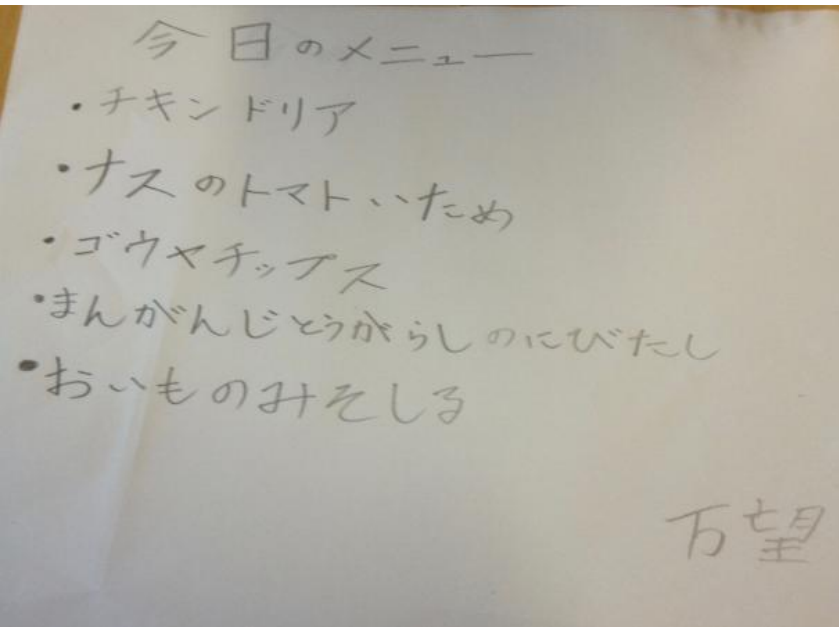 今日のメニュー
・チキンドリア
・ナスのトマトいため
・ゴウヤチップス
・まんがんじとうがらしのにびたし
・おいものみそしる
万望